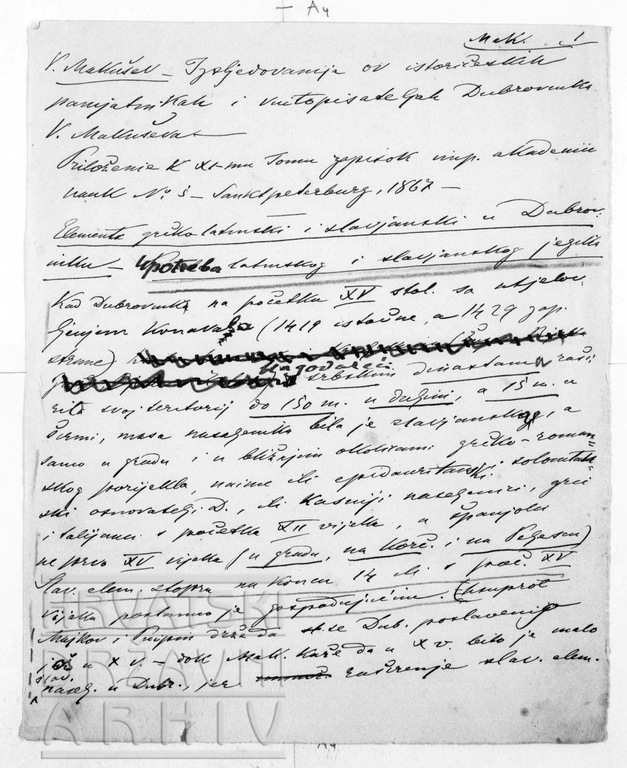 A4
Mak. 1
V. Makušev – Izsljedovanija ob istoričeskih
pamjatnikah i bitopisateljah Dubrovnika
V. Makuševa
Priloženie k XI-mu Tomu zapisok imp. akademii
nauk No. 5 – Sanktpeterburg, 1867 –
Elementi grčko latinski i slavjanski u Dubrov-
niku – Upotreba latinskog i slavjanskog jezika
Kad Dubrovnik na početku XV stol. sa utjelov-
ljenjem Konavala (1419 istočne, a 1429 zap.
strane)
ugađajući srbskim dinastama raši-
rila svoj teritorij do 150 m. u duljini, a 15 m. u
širini, masa naseljenika bila je slavjanska, a
samo u gradu i u bližnjim okolicama grčko-roman-
skog porijekla, naime ili epidauritanski i solonitan-
ski osnovatelji D., ili kasniji naseljenici, grci
i talijanci s početka XII vijeka, a španjolci
prvo XV vijeka (u gradu, na Korč. i na Pelješcu)
Slav. elem. stopra na koncu 14 ili s poč. XV
vijeka postanuo je gospodujućim. Usuprot
Majkov i Pripin drže da se Dub. poslavenio
još u X v. – dok Mak. kaže da u X v. bilo je malo
slav.
naselj. u Dubr., jer raširenje slav. elem.
HRVATSKI
DRŽAVNI
ARHIV
A4